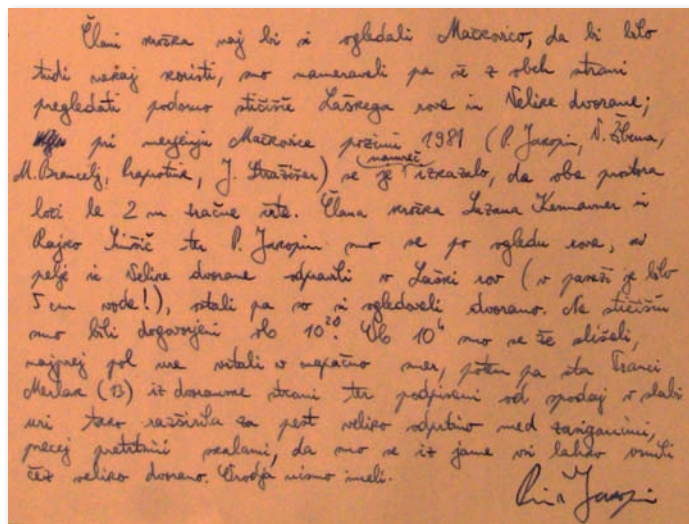 Člani krožka naj bi si ogledali Mačkovico, da bi bilo
tudi nekaj koristi, smo nameravali pa še z obeh strani
pregledati podorno stičišče Laškega rova in Velike dvorane;
pri merjenju Mačkovice pozimi 1981 (P. Jakopin, V. Žbona,
M. Brancelj, Hrapotova, J. Stražišar) se je namreč izkazalo, da oba prostora
loči le 2 m zračne črte. Člana krožka Suzana Kermavner in
Rajko ter P. Jakopin smo se po ogledu rova, ki
pelje iz Velike dvorane odpravili v Laški rov (v pasaži je bilo
5 cm vode!), ostali pa so si ogledovali dvorano. Na stičišču
smo bili dogovorjeni ob 10²⁰. Ob 10 smo se že slišali,
najprej pol ure vrtali v napačno smer, potem pa sta Franci
Merlak (13) iz dvoranske strani ter podpisani od spodaj v slabi
uri tako razširila za pest veliko odprtino med zasiganimi,
precej pretrtimi skalami, da smo se iz jame vsi lahko vrnili
čez veliko dvorano. Orodja nismo imeli.
Jakopin